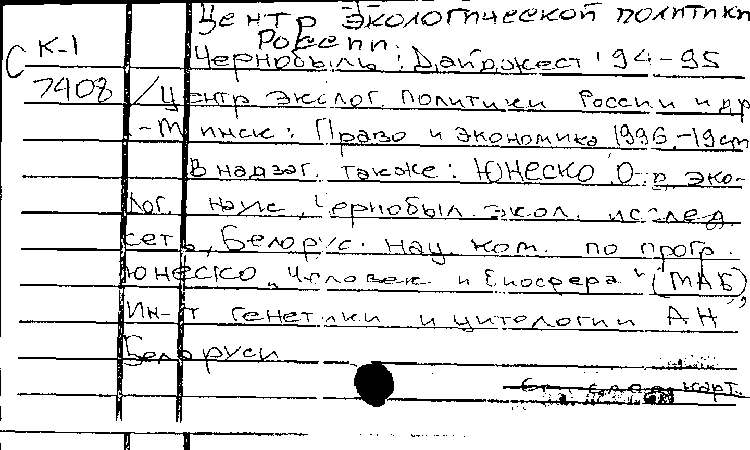 Центр экологической политики
России.
С К-1
Чернобыль: Дайджест '94-95
7408 /Центр эколог. политики России и др
.-Минск: Право и экономика, 1996.-19см
В надзаг. также: ЮНЕСКО, О-в эко-
лог. наук, Чернобыл. экол. исслед.
сеть, Белорус. нац. ком. по прогр.
ЮНЕСКО „Человек и биосфера" (МАБ),
Ин-т генетики и цитологии АН
Беларуси
карт.